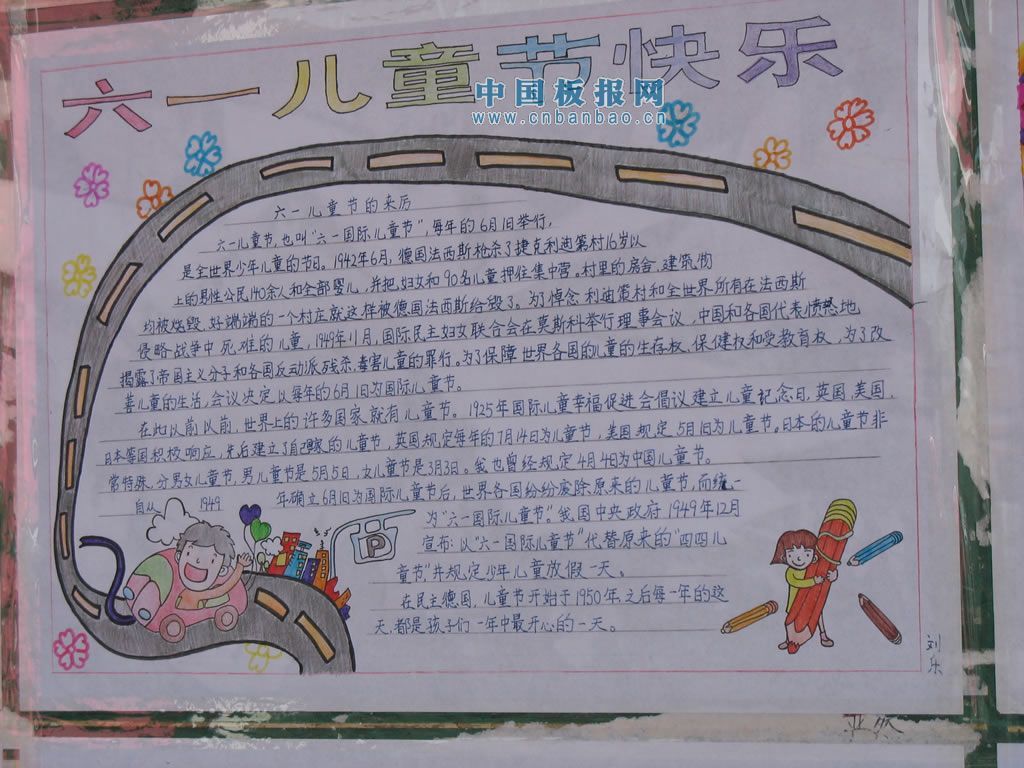 六一儿童节快乐
中国板报网
www.cnbanbao.cn
六一儿童节的来历
六一儿童节，也叫“六一国际儿童节”，每年的6月1日举行，
是全世界少年儿童的节日。1942年6月，德国法西斯枪杀了捷克利迪策村16岁以
上的男性公民140余人和全部婴儿，并把妇女和90名儿童押往集中营。村里的房舍、建筑物
均被烧毁，好端端的一个村庄就这样被德国法西斯给毁了。为了悼念利迪策村和全世界所有在法西斯
侵略战争中死难的儿童，1949年11月，国际民主妇女联合会在莫斯科举行理事会议，中国和各国代表愤怒地
揭露了帝国主义分子和各国反动派残杀、毒害儿童的罪行。为了保障世界各国的儿童的生存权、保健权和受教育权，为了改
善儿童的生活，会议决定以每年的6月1日为国际儿童节。
在此以前以前，世界上的许多国家就有儿童节。1925年国际儿童幸福促进会倡议建立儿童纪念日，英国、美国、
日本等国积极响应，先后建立了自己国家的儿童节，英国规定每年的7月14日为儿童节，美国规定5月1日为儿童节。日本的儿童节非
常特殊，分男女儿童节，男儿童节是5月5日，女儿童节是3月3日。我也曾经规定4月4日为中国儿童节。
自从 1949 年确立6月1日为国际儿童节后，世界各国纷纷废除原来的儿童节，而统一
为“六一国际儿童节”。我国中央政府1949年12月
宣布：以“六一国际儿童节”代替原来的“四四儿
童节”，并规定少年儿童放假一天。
在民主德国，儿童节开始于1950年，之后每一年的这
天，都是孩子们一年中最开心的一天。
P
刘乐